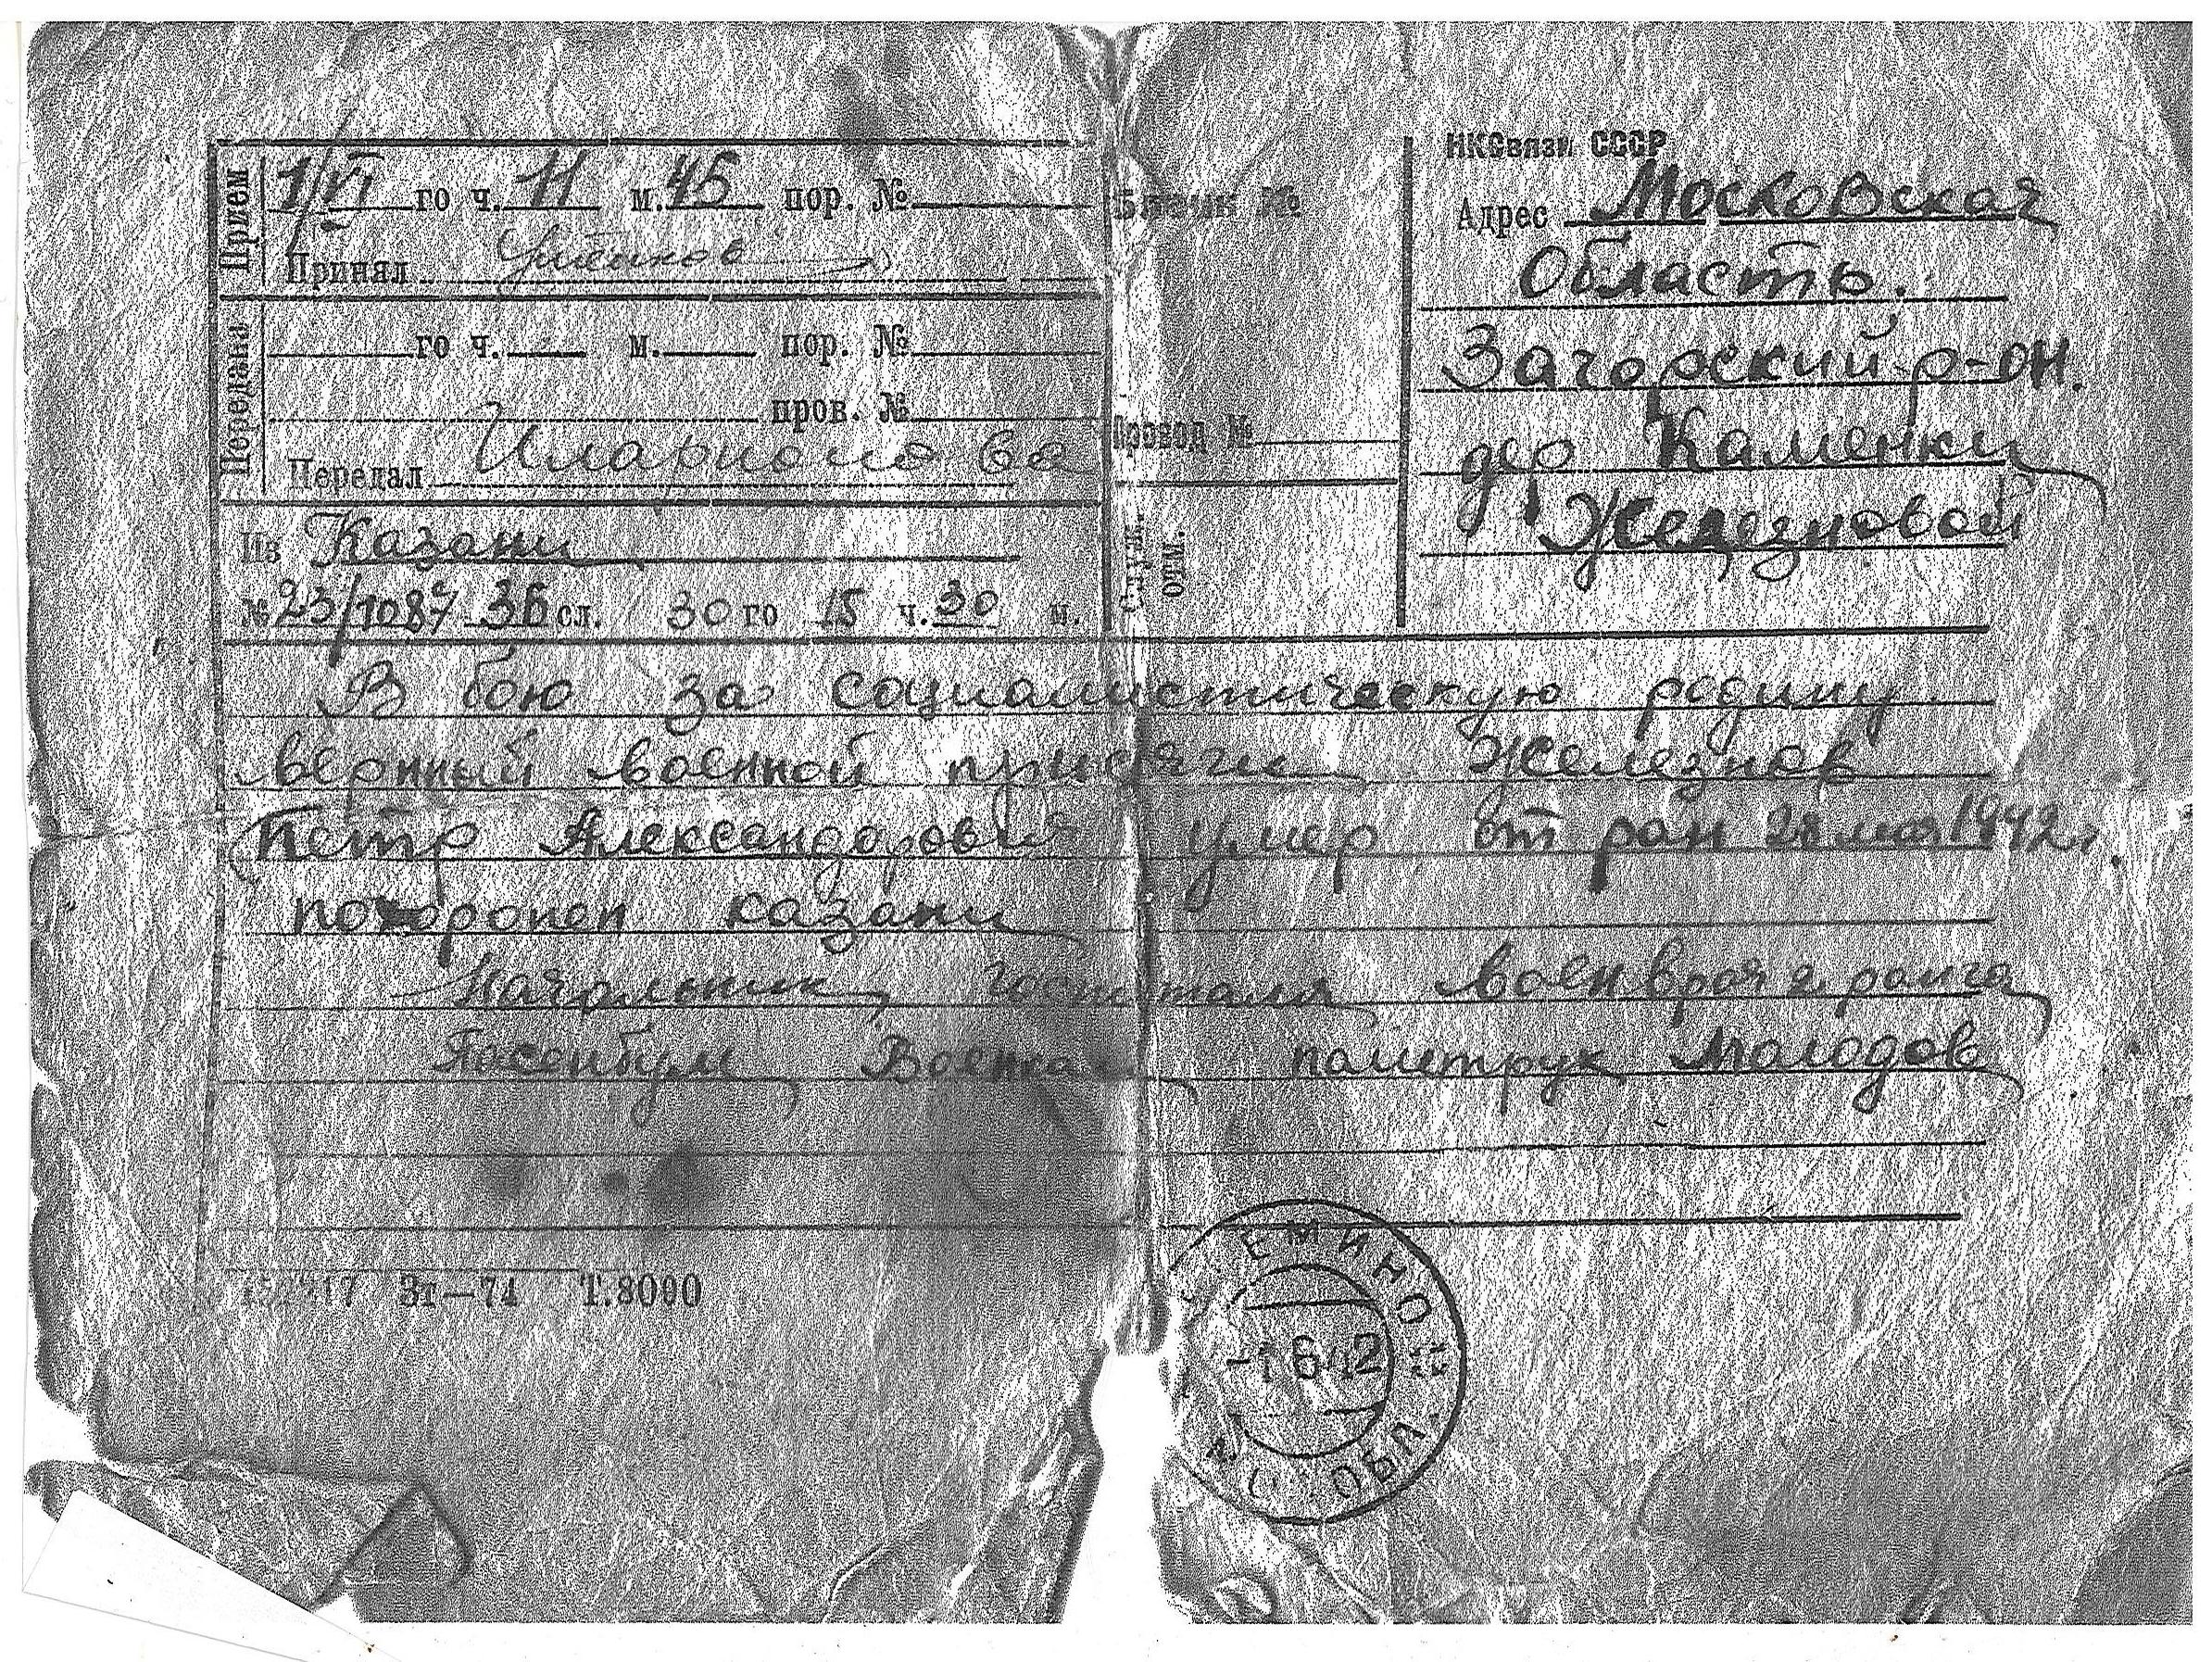 Прием
1/VI го ч. 11 м. 45 пор. №
Принял
Передача
го ч. м. пор. №
пров. №
Передал Иларионова
Из Казани
№ 23/1087 36 сл. 30 го 15 ч. 30 м.
Бланк №
Провод №
Служ. отм.
НКСвязи СССР
Адрес Московская
Область.
Загорский р-он.
дер Каменки
Железновой
В бою за социалистическую родину
верный военной присяги Железнов
Петр Александрович умер от ран 28 мая 1942г.
похоронен казани
Начальник госпиталя военврач 2 ранга
политрук Молодов
Зг—74 Т.8090
ЕМИНО
-1 6 42
МОСК. ОБЛ.